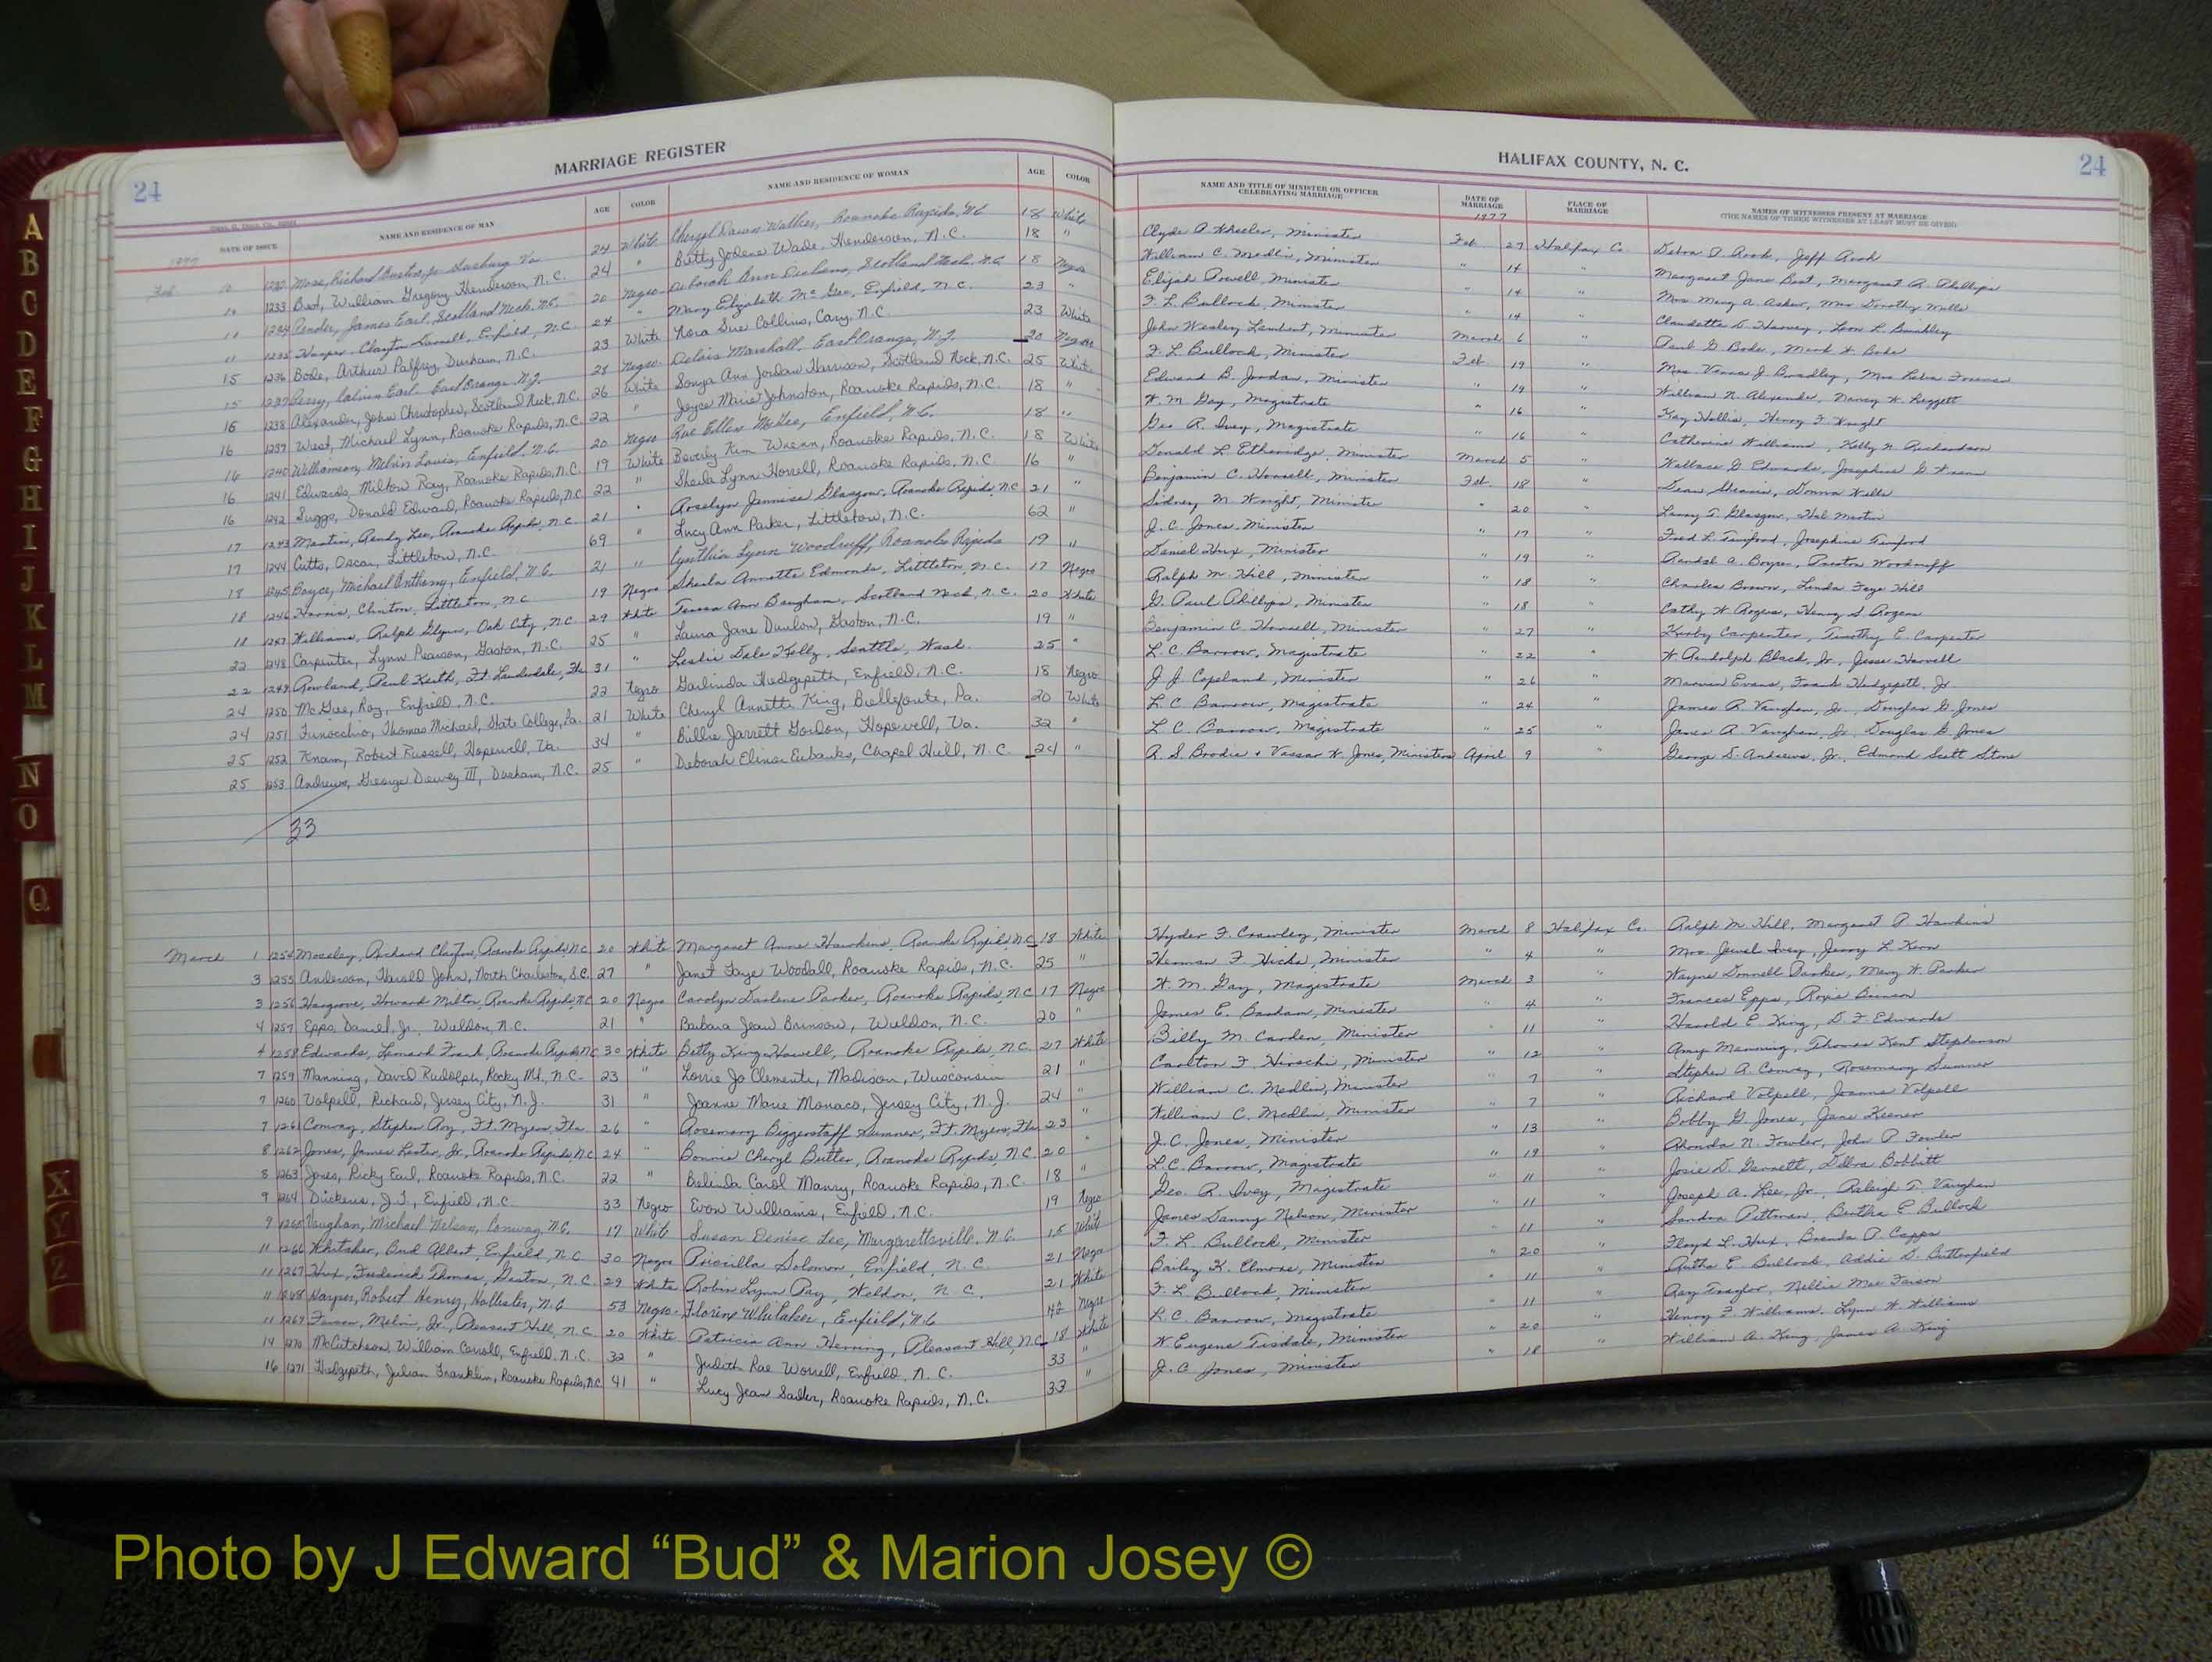 MARRIAGE REGISTER
HALIFAX COUNTY, N. C.
24
24
DATE OF ISSUE
NAME AND RESIDENCE OF MAN
AGE
COLOR
NAME AND RESIDENCE OF WOMAN
AGE
COLOR
NAME AND TITLE OF MINISTER OR OFFICER
CELEBRATING MARRIAGE
DATE OF
MARRIAGE
PLACE OF
MARRIAGE
NAMES OF WITNESSES PRESENT AT MARRIAGE
(THE NAMES OF THREE WITNESSES AT LEAST MUST BE GIVEN)
1977
1977
Feb 10 1232 24 White Cheryl Dawn Walker, Roanoke Rapids, NC 18 White Clyde Wheeler, Minister Feb. 27 Halifax Co
10 1233 Best, William Gregory Henderson, N.C. 24 " Betty Jolene Wade, Henderson, N.C. 18 " William C. Medlin, Minister " 14 " Margaret Jane Best, Margaret R. Phillips
11 1234 Pender, James Earl, Scotland Neck, N.C. 20 Negro Deborah Ann Scotland Neck, N.C. 18 Negro Elijah Powell, Minister " 14 " Mrs Mary A. Asker, Mrs Dorothy Mills
11 1235 Harper, Clayton Enfield, N.C. 24 " Mary Elizabeth McGee, Enfield, N.C. 23 " F. L. Bullock, Minister " 14 "
15 1236 Bode, Arthur Palfrey, Durham, N.C. 23 White Nora Sue Collins, Cary, N.C 23 White John Wesley Lambert, Minister March 6 " Paul G Bode, Mark H. Bode
15 1237 Perry, Calvin Earl, East Orange, N.J. 28 Negro Delois Marshall, East Orange, N.J. 20 Negro F. L. Bullock, Minister Feb. 19 "
16 1238 Alexander, John Christopher, Scotland Neck, N.C. 26 White Sonya Ann Jordan Harrison, Scotland Neck, N.C. 25 White Edward B. Jordan, Minister " 19 " William N. Alexander, Nancy H. Leggett
16 1239 West, Michael Lynn, Roanoke Rapids, N.C. 22 " Joyce Marie Johnston, Roanoke Rapids, N.C. 18 " W. M. Gay, Magistrate " 16 " Kay Hollis, Henry F. Wright
16 1240 Williamson, Melvin Louis, Enfield, N.C. 20 Negro Rae Ellen McGee, Enfield, N.C. 18 " Geo R. Ivey, Magistrate " 16 " Catherine Williams, Kelly N. Richardson
16 1241 Edwards, Milton Ray, Roanoke Rapids, N.C. 19 White Beverly Kim Wrenn, Roanoke Rapids, N.C. 18 White Donald L Etheridge, Minister March 5 " Wallace G Edwards, Josephine G Wrenn
16 1242 Suggs, Donald Edward, Roanoke Rapids, N.C 22 " Sheila Lynn Horrell, Roanoke Rapids, N.C 16 " Benjamin C. Horrell, Minister Feb. 18 " Donna Wells
17 1243 Martin, Randy Lee, Roanoke Rapids, N.C. 21 " Roselyn Jannise Glasgow, Roanoke Rapids, NC 21 " Sidney M. Wright, Minister " 20 " Larry T. Glasgow, Hal Martin
17 1244 Cutts, Oscar, Littleton, N.C. 69 " Lucy Ann Parker, Littleton, N.C. 62 " J. C. Jones, Minister " 17 "
18 1245 Boyce, Michael Anthony, Enfield, N.C. 21 " Cynthia Lynn Woodruff, Roanoke Rapids 19 " Daniel Hux, Minister " 19 " Randal A. Boyce, Preston Woodruff
18 1246 Harris, Clinton, Littleton, N.C 19 Negro Sheila Annette Edmonds, Littleton, N.C. 17 Negro Ralph M. Hill, Minister " 18 " Charles Brown, Linda Faye Hill
18 1247 Williams, Ralph Glynn, Oak City, N.C. 29 White Teresa Ann Baugham, Scotland Neck, N.C. 20 White G. Paul Phillips, Minister " 18 " Cathy W. Rogers, Henry S. Rogers
22 1248 Carpenter, Lynn Pearson, Gaston, N.C. 25 " Laura Jane Dunlow, Gaston, N.C. 19 " Benjamin C. Horrell, Minister " 27 " Kirby Carpenter, Timothy E. Carpenter
22 1249 Rowland, Paul Keith, Ft. Lauderdale, Fla 31 " Leslie Dale Kelly, Seattle, Wash. 25 " L. C. Barrow, Magistrate " 22 " W Randolph Black, Jr., Jesse Harrell
24 1250 McGee, Roy, Enfield, N.C. 22 Negro Garlinda Hedgepeth, Enfield, N.C. 18 Negro J. J. Copeland, Minister " 26 " Marvin Evans, Frank Hedgepeth, Jr.
24 1251 Finocchio, Thomas Michael, State College, Pa. 21 White Cheryl Annette King, Bellefonte, Pa. 20 White L. C. Barrow, Magistrate " 24 " James R. Vaughan, Jr., Douglas G. Jones
25 1252 Knam, Robert Russell, Hopewell, Va. 34 " Billie Jarrett Gordon, Hopewell, Va. 32 " L. C. Barrow, Magistrate " 25 " James R. Vaughan, Jr. Douglas G. Jones
25 1253 Andrews, George Dewey III, Durham, N.C. 25 " Deborah Elinor Eubanks, Chapel Hill, N.C. 24 " R. S. Brodie & Vassar W. Jones, Ministers April 9 " George D. Andrews, Jr., Edmond Scott Stone
33
March 1 1254 Moseley, Richard Clayton, Roanoke Rapids, N.C. 20 White Margaret Anne Hawkins, Roanoke Rapids, N.C. 18 White Hyder F. Crawley, Minister March 8 Halifax Co. Ralph M. Hill, Margaret P. Hawkins
3 1255 Anderson, Harold John, North Charleston, S.C. 27 " Janet Faye Woodall, Roanoke Rapids, N.C. 25 " Herman F Hicks, Minister " 4 " Mrs. Jewel Ivey, Jerry L. Kern
3 1256 Hargrove, Howard Milton, Roanoke Rapids, N.C. 20 Negro Carolyn Darlene Parker, Roanoke Rapids, N.C 17 Negro W. M. Gay, Magistrate March 3 " Wayne Donnell Parker, Mary W. Parker
4 1257 Epps, Daniel, Jr. Weldon, N.C. 21 " Barbara Jean Brinson, Weldon, N.C. 20 " James E. Barham, Minister " 4 " Frances Epps, Roxie Brinson
4 1258 Edwards, Leonard Frank, Roanoke Rapids, N.C 30 White Betty King Howell, Roanoke Rapids, N.C. 27 White Billy M. Carden, Minister " 11 " Harold E. King, D. F Edwards
7 1259 Manning, David Rudolph, Rocky Mt., N.C. 23 " Lorrie Jo Clements, Madison, Wisconsin 21 " Carlton F. Hirschi, Minister " 12 " Amy Manning, Thomas Kent Stephenson
7 1260 Volpell, Richard, Jersey City, N.J. 31 " Joanne Marie Monaco, Jersey City, N.J. 24 " William C. Medlin, Minister " 7 " Stephen A. Conway, Rosemary Sumner
7 1261 Conway, Stephen Roy, Ft. Myers, Fla. 26 " Rosemary Biggerstaff Sumner, Ft. Myers, Fla 23 " William C. Medlin, Minister " 7 " Richard Volpell, Joanne Volpell
8 1262 Jones, James Lester, Jr, Roanoke Rapids, N.C 24 " Bonnie Cheryl Butler, Roanoke Rapids, N.C. 20 J. C. Jones, Minister " 13 " Bobby G. Jones, Jane Keener
8 1263 Jones, Ricky Earl, Roanoke Rapids, N.C. 22 " Belinda Carol Manry, Roanoke Rapids, N.C. 18 " L. C. Barrow, Magistrate " 19 " Rhonda N. Fowler, John P. Fowler
9 1264 Dickens, J.T., Enfield, N.C. 33 Negro Evon Williams, Enfield, N.C. 19 Negro Geo. R. Ivey, Magistrate " 11 " Josie D. Garnett, Debra Bobbitt
9 1265 Vaughan, Michael Nelson, Conway, N.C. 17 White Susan Denise Lee, Margarettsville, N.C. White James Danny Nelson, Minister " 11 " Joseph A. Lee, Jr., Raleigh T. Vaughan
11 1266 Whitaker, Bud Albert, Enfield, N.C 30 Negro Priscilla Solomon, Enfield, N.C 21 Negro F. L. Bullock, Minister " 11 " Sandra Pittman, Bertha E Bullock
11 1267 Hux, Frederick Thomas, Gaston, N.C. 29 White Robin Lynn Ray, Weldon, N.C. 21 White Bailey K. Elmore, Minister " 20 " Floyd L. Hux, Brenda P. Capps
11 1268 Harper, Robert Henry, Hollister, N.C 53 Negro Florine Whitaker, Enfield, N.C Negro F. L. Bullock, Minister " 11 " Bertha E. Bullock, Addie D. Butterfield
11 1269 Melvin, Jr., Pleasant Hill, N.C. 20 White Patricia Ann Herring, Pleasant Hill, N.C. 18 White L. C. Barrow, Magistrate " 11 " Ray Traylor, Nellie Mae
14 1270 McCutcheon, William Carroll, Enfield, N.C. 32 " Judith Rae Worrell, Enfield, N.C. 33 " W Eugene Tisdale, Minister " 20 " Henry F. Williams, Lynn W. Williams
16 1271 Hedgepeth, Julian Franklin, Roanoke Rapids, N.C. 41 " Lucy Jean Sadler, Roanoke Rapids, N.C. 33 " J. C. Jones, Minister " 18 " William A. King, James A. King
A
B
C
D
E
F
G
H
I
J
K
L
M
N
O
Q
X
Y
Z
Photo by J Edward “Bud” & Marion Josey ©